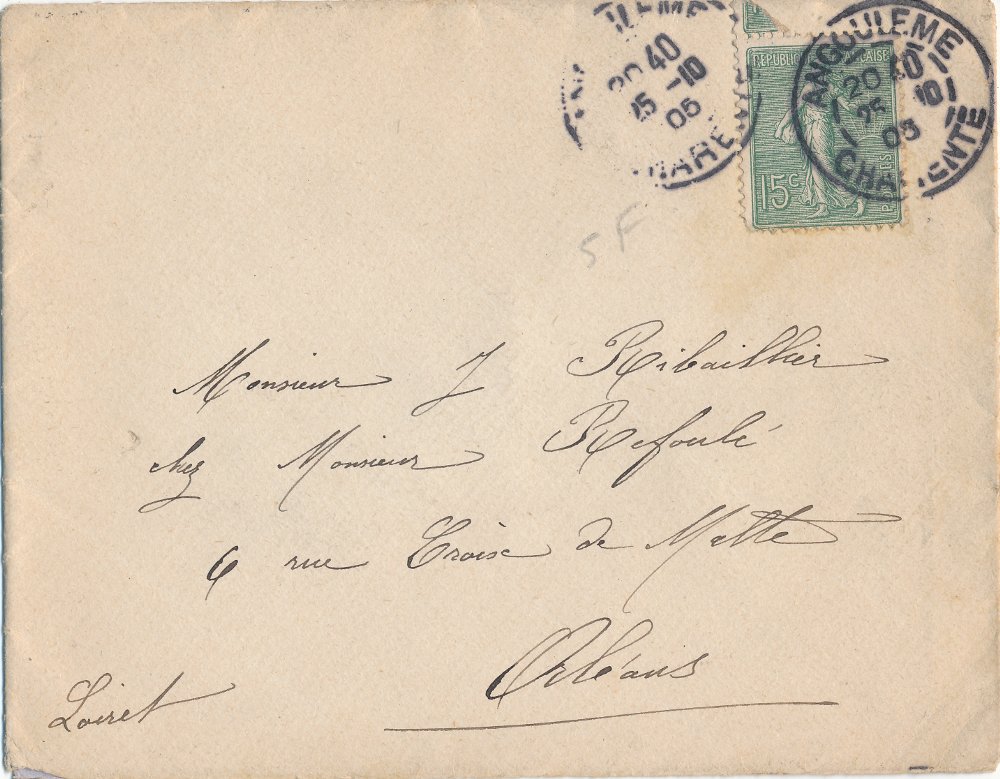 ANGOULEME
20 40
25 -10
05
CHARENTE
REPUBLIQUE FRANÇAISE
15c
POSTES
ANGOULEME
20 40
25 -10
05
CHARENTE
5 F
Monsieur J Ribaillier
chez Monsieur Refoulé
6 rue Croix de Malte
Orléans
Loiret